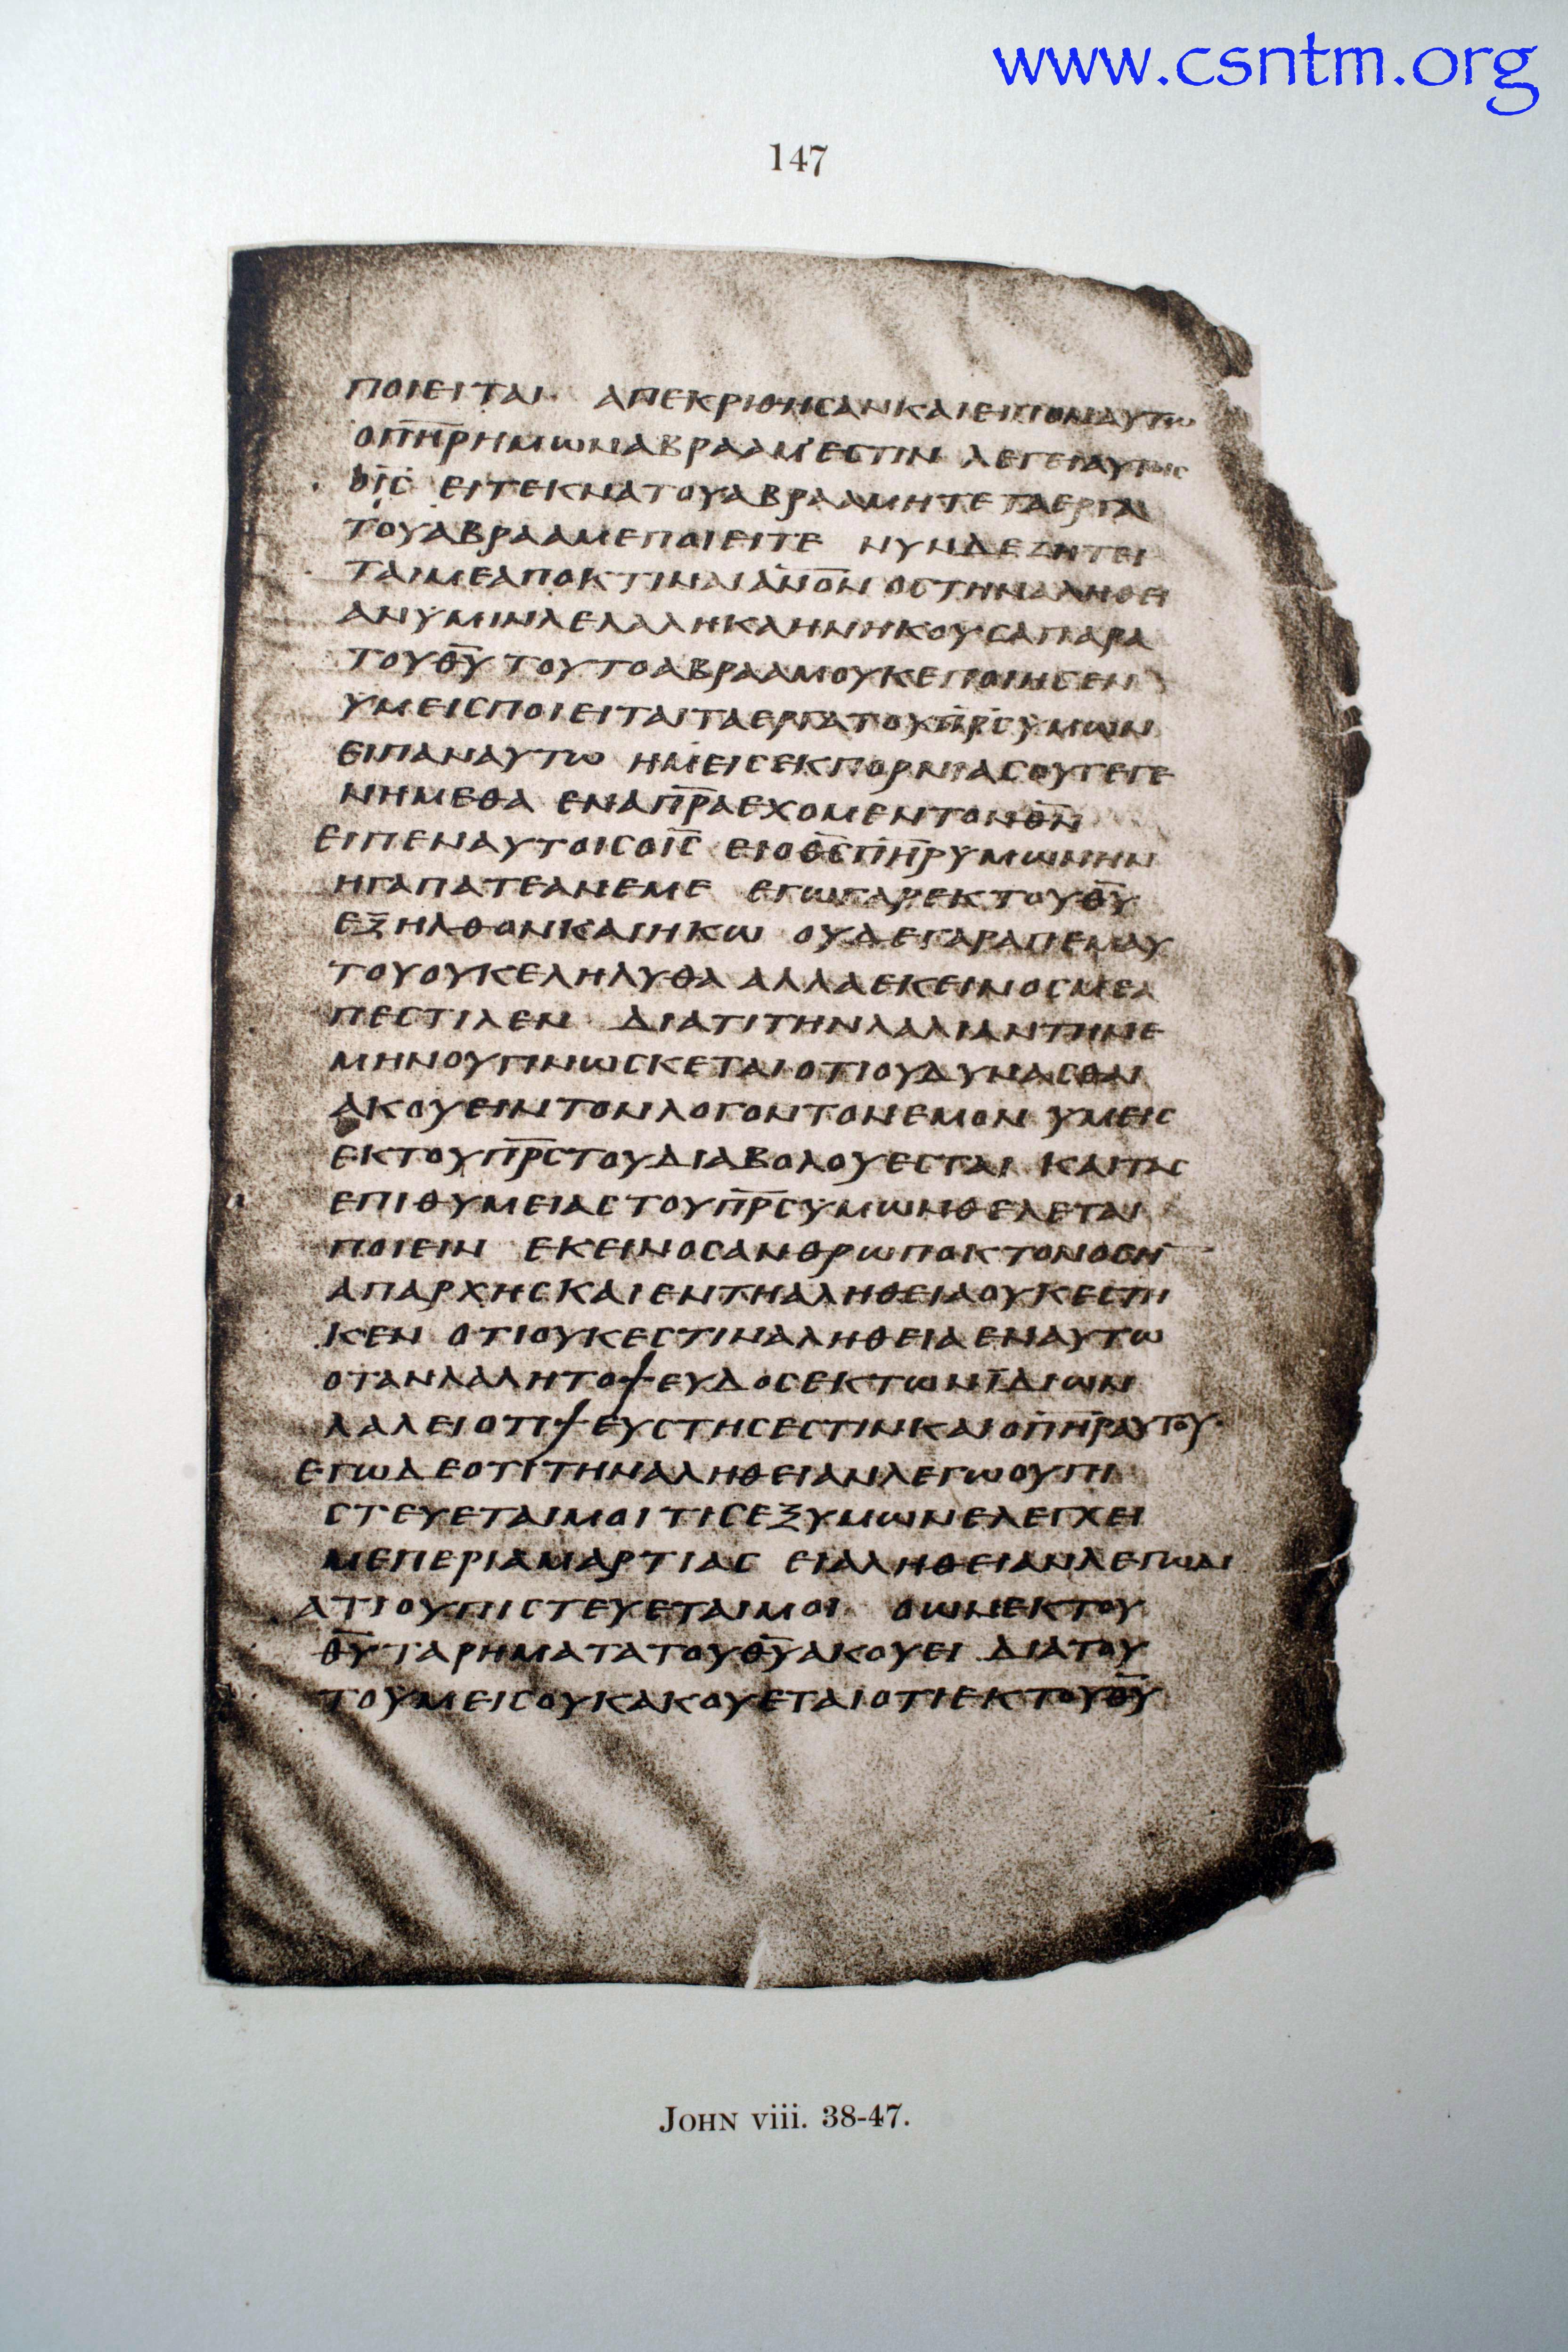 www.csntm.org
147
ΠΟΙΕΙΤΑΙ ΑΠΕΚΡΙΘΗCΑΝΚΑΙΕΙΠΟΝΑΥΤω
ΟΠ̅Η̅Ρ̅ΗΜωΝΑΒΡΑΑΜ'ΕCΤΙΝ ΛΕΓΕΙΑΥΤΟΙC
ΟΙ̅C̅ ΕΙΤΕΚΝΑΤΟΥΑΒΡΑΑΜΗΤΕΤΑΕΡΓΑ
ΤΟΥΑΒΡΑΑΜΕΠΟΙΕΙΤΕ ΝΥΝΔΕΖΗΤΕΙ
ΤΑΙΜΕΑΠΟΚΤΙΝΑΙΑ̅Ν̅Ο̅Ν̅ ΟCΤΗΝΑΛΗΘΕΙ
ΑΝΥΜΙΝΛΕΛΑΛΗΚΑΗΝΗΚΟΥCΑΠΑΡΑ
ΤΟΥΘ̅Υ̅ ΤΟΥΤΟΑΒΡΑΑΜΟΥΚΕΠΟΙΗCΕΝ
ΥΜΕΙCΠΟΙΕΙΤΑΙΤΑΕΡΓΑΤΟΥΠ̅Ρ̅C̅ΥΜωΝ
ΕΙΠΑΝΑΥΤω ΗΜΕΙCΕΚΠΟΡΝΙΑCΟΥΓΕΓΕ
ΝΗΜΕΘΑ ΕΝΑΠ̅Ρ̅ΑΕΧΟΜΕΝΤΟΝΘ̅Ν̅
ΕΙΠΕΝΑΥΤΟΙCΟΙ̅C̅ ΕΙΟΘ̅C̅Π̅Η̅Ρ̅ΥΜωΝΗΝ
ΗΓΑΠΑΤΕΑΝΕΜΕ ΕΓωΓΑΡΕΚΤΟΥΘ̅Υ̅
ΕΞΗΛΘΟΝΚΑΙΗΚω ΟΥΔΕΓΑΡΑΠΕΜΑΥ
ΤΟΥΟΥΚΕΛΗΛΥΘΑ ΑΛΛΑΕΚΕΙΝΟCΜΕΑ
ΠΕCΤΙΛΕΝ ΔΙΑΤΙΤΗΝΛΑΛΙΑΝΤΗΝΕ
ΜΗΝΟΥΓΙΝωCΚΕΤΑΙΟΤΙΟΥΔΥΝΑCΘΑΙ
ΑΚΟΥΕΙΝΤΟΝΛΟΓΟΝΤΟΝΕΜΟΝ ΥΜΕΙC
ΕΚΤΟΥΠ̅Ρ̅C̅ΤΟΥΔΙΑΒΟΛΟΥΕCΤΑΙ ΚΑΙΤΑC
ΕΠΙΘΥΜΕΙΑCΤΟΥΠ̅Ρ̅C̅ΥΜωΝΘΕΛΕΤΑΙ
ΠΟΙΕΙΝ ΕΚΕΙΝΟCΑΝΘΡωΠΟΚΤΟΝΟCΗ̅
ΑΠΑΡΧΗCΚΑΙΕΝΤΗΑΛΗΘΕΙΑΟΥΚΕCΤΗ
ΚΕΝ ΟΤΙΟΥΚΕCΤΙΝΑΛΗΘΕΙΑΕΝΑΥΤω
ΟΤΑΝΛΑΛΗΤΟΨΕΥΔΟCΕΚΤωΝΪΔΙωΝ
ΛΑΛΕΙΟΤΙΨΕΥCΤΗCΕCΤΙΝΚΑΙΟΠ̅Η̅Ρ̅ΑΥΤΟΥ·
ΕΓωΔΕΟΤΙΤΗΝΑΛΗΘΕΙΑΝΛΕΓωΟΥΠΙ
CΤΕΥΕΤΑΙΜΟΙ ΤΙCΕΞΥΜωΝΕΛΕΓΧΕΙ
ΜΕΠΕΡΙΑΜΑΡΤΙΑC ΕΙΑΛΗΘΕΙΑΝΛΕΓωΔΙ
ΑΤΙΟΥΠΙCΤΕΥΕΤΑΙΜΟΙ ΟωΝΕΚΤΟΥ
Θ̅Υ̅ΤΑΡΗΜΑΤΑΤΟΥΘ̅Υ̅ΑΚΟΥΕΙ ΔΙΑΤΟΥ
ΤΟΥΜΕΙCΟΥΚΑΚΟΥΕΤΑΙΟΤΙΕΚΤΟΥΘ̅Υ̅
JOHN viii. 38-47.